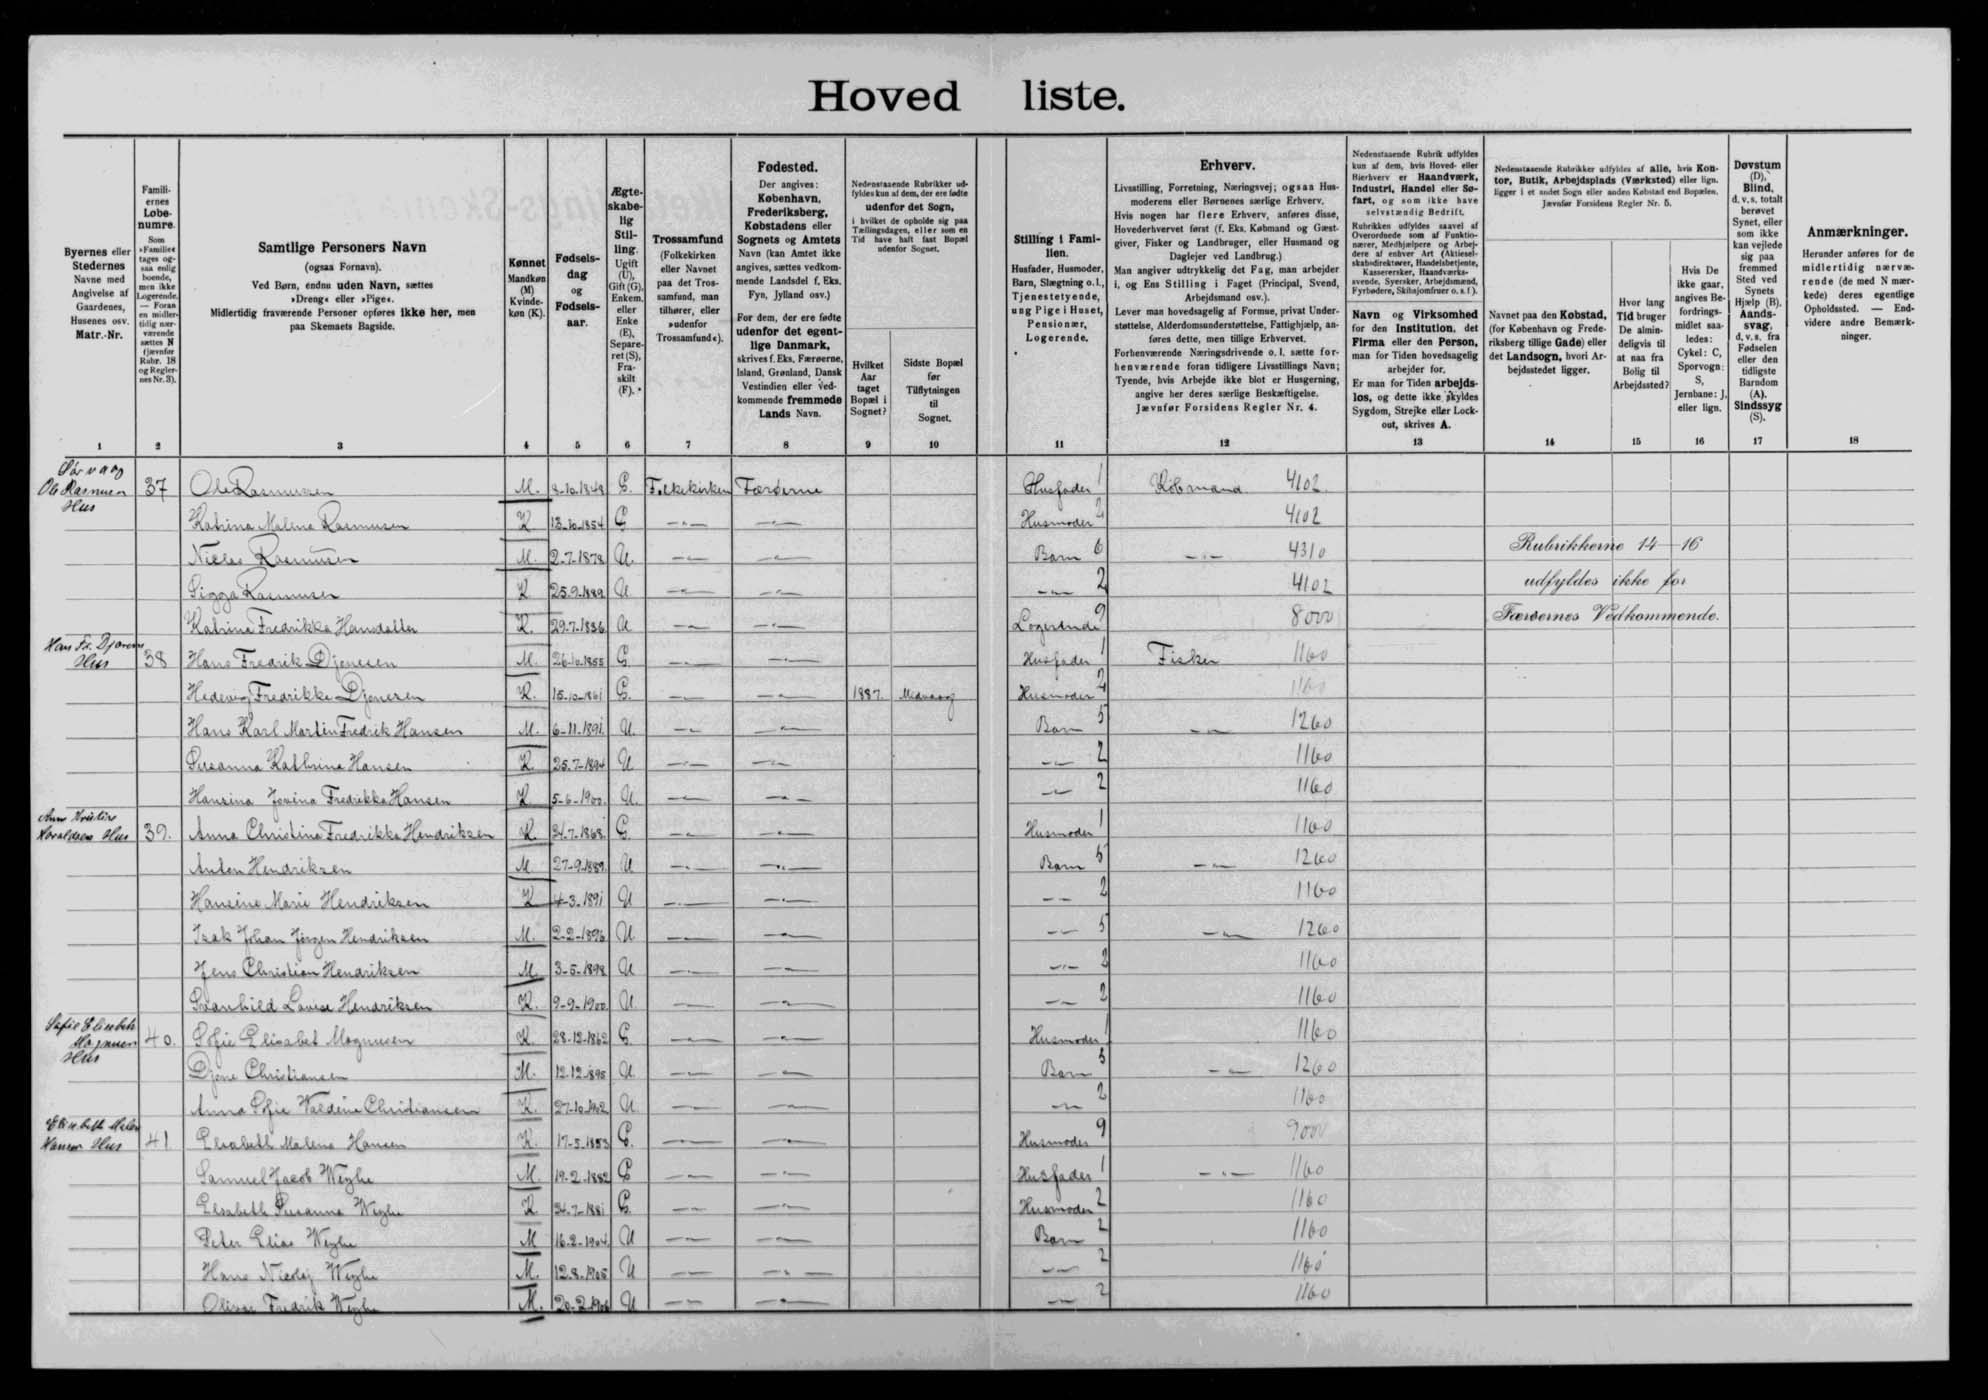 Hovedliste.
Byernes eller Stedernes Navne med Angivelse af Gaardenes, Husenes osv. Matr.-Nr.
Familiernes Løbenumre. Som »Familie« tages ogsaa enlig boende, men ikke Logerende. — Foran en midlertidig nærværende sættes N (jævnfør Rubr. 18 og Regler-nes Nr. 3).
Samtlige Personers Navn
(ogsaa Fornavn).
Ved Børn, endnu uden Navn, sættes »Dreng« eller »Pige«.
Midlertidig fraværende Personer opføres ikke her, men paa Skemaets Bagside.
Kønnet Mandkøn (M) Kvindekøn (K).
Fødselsdag og Fødselsaar.
Ægteskabelig Stilling. Ugift (U), Gift (G), Enkem. eller Enke (E), Separeret (S), Fraskilt (F).
Trossamfund (Folkekirken eller Navnet paa det Trossamfund, man tilhører, eller »udenfor Trossamfund«).
Fødested.
Der angives: København, Frederiksberg, Købstadens eller Sognets og Amtets Navn (kan Amtet ikke angives, sættes vedkommende Landsdel f. Eks. Fyn, Jylland osv.)
For dem, der ere fødte udenfor det egentlige Danmark, skrives f. Eks. Færøerne, Island, Grønland, Dansk Vestindien eller vedkommende fremmede Lands Navn.
Nedenstaaende Rubrikker udfyldes kun af dem, der ere fødte udenfor det Sogn, i hvilket de opholde sig paa Tællingsdagen, eller som en Tid have haft fast Bopæl udenfor Sognet.
Hvilket Aar taget Bopæl i Sognet?
Sidste Bopæl før Tilflytningen til Sognet.
Stilling i Familien.
Husfader, Husmoder, Barn, Slægtning o. l., Tjenestetyende, ung Pige i Huset, Pensionær, Logerende.
Erhverv.
Livsstilling, Forretning, Næringsvej; ogsaa Husmoderens eller Børnenes særlige Erhverv.
Hvis nogen har flere Erhverv, anføres disse, Hovederhvervet først (f. Eks. Købmand og Gæstgiver, Fisker og Landbruger, eller Husmand og Daglejer ved Landbrug.)
Man angiver udtrykkelig det Fag, man arbejder i, og Ens Stilling i Faget (Principal, Svend, Arbejdsmand osv.).
Lever man hovedsagelig af Formue, privat Understøttelse, Alderdomsunderstøttelse, Fattighjælp, anføres dette, men tillige Erhvervet.
Forhenværende Næringsdrivende o. l. sætte forhenværende foran tidligere Livsstillings Navn;
Tyende, hvis Arbejde ikke blot er Husgerning, angive her deres særlige Beskæftigelse.
Jævnfør Forsidens Regler Nr. 4.
Nedenstaaende Rubrik udfyldes kun af dem, hvis Hoved- eller Bierhverv er Haandværk, Industri, Handel eller Søfart, og som ikke have selvstændig Bedrift.
Rubrikken udfyldes saavel af Overordnede som af Funktionærer, Medhjælpere og Arbejdere af enhver Art (Aktieselskabsdirektører, Handelsbetjente, Kasserersker, Haandværkssvende, Syersker, Arbejdsmænd, Fyrbødere, Skibsjomfruer o. s. f.).
Navn og Virksomhed for den Institution, det Firma eller den Person, man for Tiden hovedsagelig arbejder for.
Er man for Tiden arbejdsløs, og dette ikke skyldes Sygdom, Strejke eller Lockout, skrives A.
Nedenstaaende Rubrikker udfyldes af alle, hvis Kontor, Butik, Arbejdsplads (Værksted) eller lign. ligger i et andet Sogn eller anden Købstad end Bopælen.
Jævnfør Forsidens Regler Nr. 5.
Navnet paa den Købstad, (for København og Frederiksberg tillige Gade) eller det Landsogn, hvori Arbejdsstedet ligger.
Hvor lang Tid bruger De almindeligvis til at naa fra Bolig til Arbejdssted?
Hvis De ikke gaar, angives Befordringsmidlet saaledes: Cykel: C, Sporvogn: S, Jernbane: J, eller lign.
Døvstum (D), Blind, d. v. s. totalt berøvet Synet, eller som ikke kan vejlede sig paa fremmed Sted ved Synets Hjælp (B), Aandssvag, d. v. s. fra Fødselen eller den tidligste Barndom (A). Sindssyg (S).
Anmærkninger.
Herunder anføres for de midlertidig nærværende (de med N mærkede) deres egentlige Opholdssted. — Endvidere andre Bemærkninger.
1 2 3 4 5 6 7 8 9 10 11 12 13 14 15 16 17 18
Sørvaag
Ole Rasmusen Hus 37 Ole Rasmussen M. 8-10.1848 G. Folkekirken Færøerne Husfader 1 Købmand 4102
Katrina Malena Rasmusen K 13-10-1854 G Husmoder 2 4102
Niclas Rasmusen M. 2-7-1878 U. Barn 6 4310 Rubrikkerne 14-16
Sigga Rasmusen K 25-9-1889 U 2 4102 udfyldes ikke for
Katrina Fredrikka Hansdatter K. 29.7-1836 U Logerende 9 8000 Færøernes Vedkommende.
Hans Fr. Djonesen Hus 38 Hans Fredrik Djonesen M. 26-10-1855 G. Husfader 1 Fisker 1160
Hedevig Fredrikke Djonesen K. 15-10-1861 G. 1887. Midvaag Husmoder 2 1160
Hans Karl Martin Fredrik Hansen M. 6-11-1891 U. Barn 5 1260
Susanna Kathrina Hansen K 25.7-1894 U 2 1160
Hansina Jovina Fredrikka Hansen K 5-6-1900. U. 2 1160
39. Anna Christina Fredrikka Hendriksen K 24.7.1868 G. Husmoder 1 1160
Anton Hendriksen M 27-9-1889 U Barn 5 1260
Hansine Marie Hendriksen K 4-3-1891 U 2 1160
Isak Johan Jørgen Hendriksen M. 2-2-1896 U 5 1260
Jens Christian Hendriksen M. 3-5-1898 U 2 1160
Svanhild Lovise Hendriksen K. 9-9-1900 U. 2 1160
Sofie Elisabeth Magnusen Hus 40. Sofie Elisabet Magnusen K. 28-12-1862 G. Husmoder 1 1160
Djone Christiansen M. 12-12-1895 U Barn 5 1260
Anna Sofie Valdine Christiansen K. 27-10-1902 U. 2 1160
Elisabeth Malen Hansen Hus 41. Elsabeth Malena Hansen K. 17-5-1853 G. Husmoder 9 9000
Samuel Jacob Weyhe M. 19-2-1882 G Husfader 1 1160
Elsabeth Susanna Weyhe K. 24-7-1881 G. Husmoder 2 1160
Peter Elias Weyhe M 16-2-1904 U Barn 2 1160
Hans Nicolaj Weyhe M. 12-8-1905 U 2 1160
Oliver Fredrik Weyhe M. 20-2-1906 U 2 1160